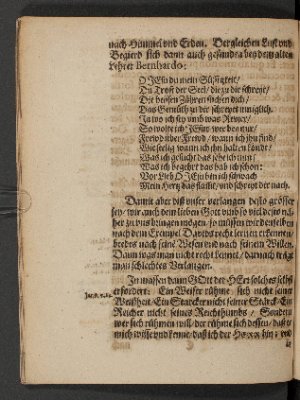 nach Himmel und Erden. Dergleichen Lust und
Begierd sich dann auch gefunden bey dem alten
Lehrer Bernhardo:
O JEsu du mein Süssigkeit/
Du Trost der Seel/ die zu dir schreyt/
Die heissen Zähren suchen dich/
Das Gemüth zu dir schreyet inniglich.
Ja wo ich sey und was Revier/
So wolte ich JEsus wer bey mir/
Frewd über Frewd/ wann ich ihn find/
Wie seelig wann ich ihn halten köndt/
Was ich gesucht das sehe ich nun/
Was ich begehrt das hab ich schon:
Vor Lieb O JEsu bin ich schwach
Mein Hertz das flam̃t/ und schreyt dir nach.
Damit aber diß unser verlangen desto grösser
sey/ wir auch dem lieben Gott umb so viel desto nä-
her zu uns bringen mögen/ so müssen wir denselben
nach dem Exempel Davids recht lernen erkennen/
beedes nach seine Wesen und nach seinem Willen.
Dann was man nicht recht kennet/ darnach trägt
man schlechtes Verlangen.
In massen dann GOtt der HErr solches selbst
erfordert: Ein Weiser rühme sich nicht seiner
Weißheit/ Ein Starcker nicht seiner Stärck/ Ein
Reicher nicht seines Reichthumbs/ Sondern
wer sich rühmen will/ der rühme sich dessen/ daß er
mich wisse und kenne/ daß ich der HErr bin; und